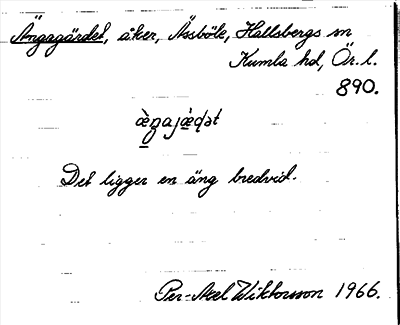 Ängagärdet, åker, Ässböle, Hallsbergs sn
Kumla hd, Ör. l.
890.
æ̀ŋajæ̀ḍət
Det ligger en äng bredvid.
Per-Axel Wiktorsson 1966.